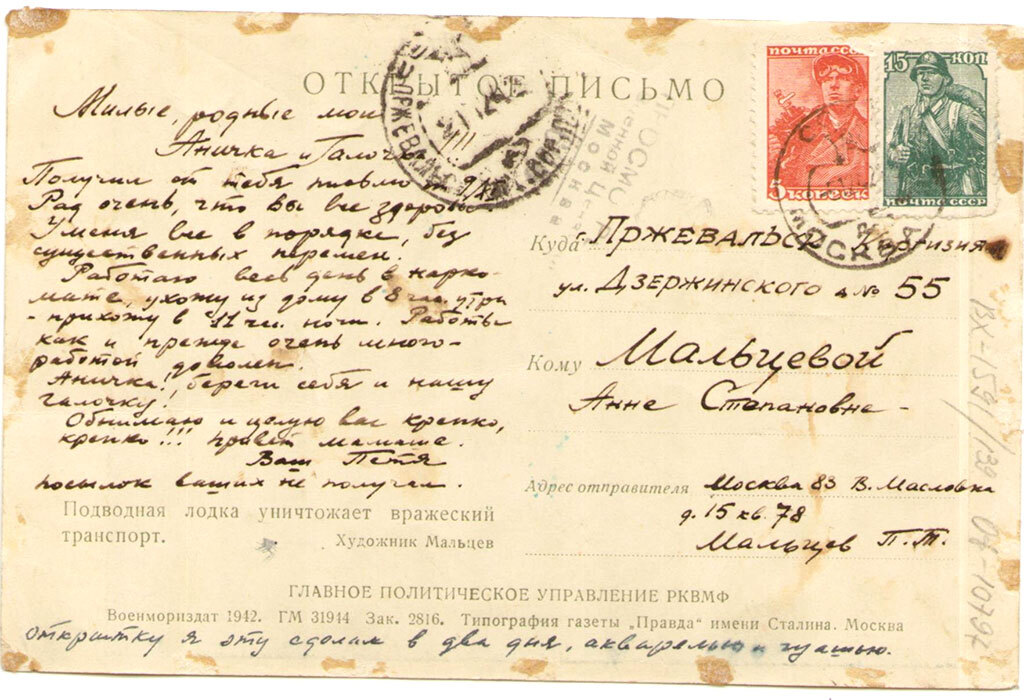 ОТКРЫТОЕ ПИСЬМО
Милые, родные мои
Аничка и Галочка
Получил от тебя письмо 9/XI
Рад очень, что вы все здоровы
У меня все в порядке, без
существенных перемен.
Работаю весь день в нарко-
мате, ухожу из дому в 8 час. утра
- прихожу в 11 час. ночи. Работы
как и прежде очень много-
работой доволен.
Аничка! береги себя и нашу
галочку!
Обнимаю и целую вас крепко,
крепко!!! привет мамаше.
Ваш Петя
посылок ваших не получал.
Подводная лодка уничтожает вражеский
транспорт.
Художник Мальцев
ПОЧТА СССР
5 КОПЕЕК
15 КОП
ПОЧТА СССР
МОСКВА
Москва
Куда г. Пржевальск Киргизия
ул. Дзержинского д № 55
Кому Мальцевой
Анне Степановне -
Адрес отправителя Москва 83 В. Масловка
д. 15 кв. 78
Мальцев П. Т.
ГЛАВНОЕ ПОЛИТИЧЕСКОЕ УПРАВЛЕНИЕ РКВМФ
Военмориздат 1942. ГМ 31944 Зак. 2816. Типография газеты „Правда“ имени Сталина. Москва
открытку я эту сделал в два дня, акварелью и гуашью.